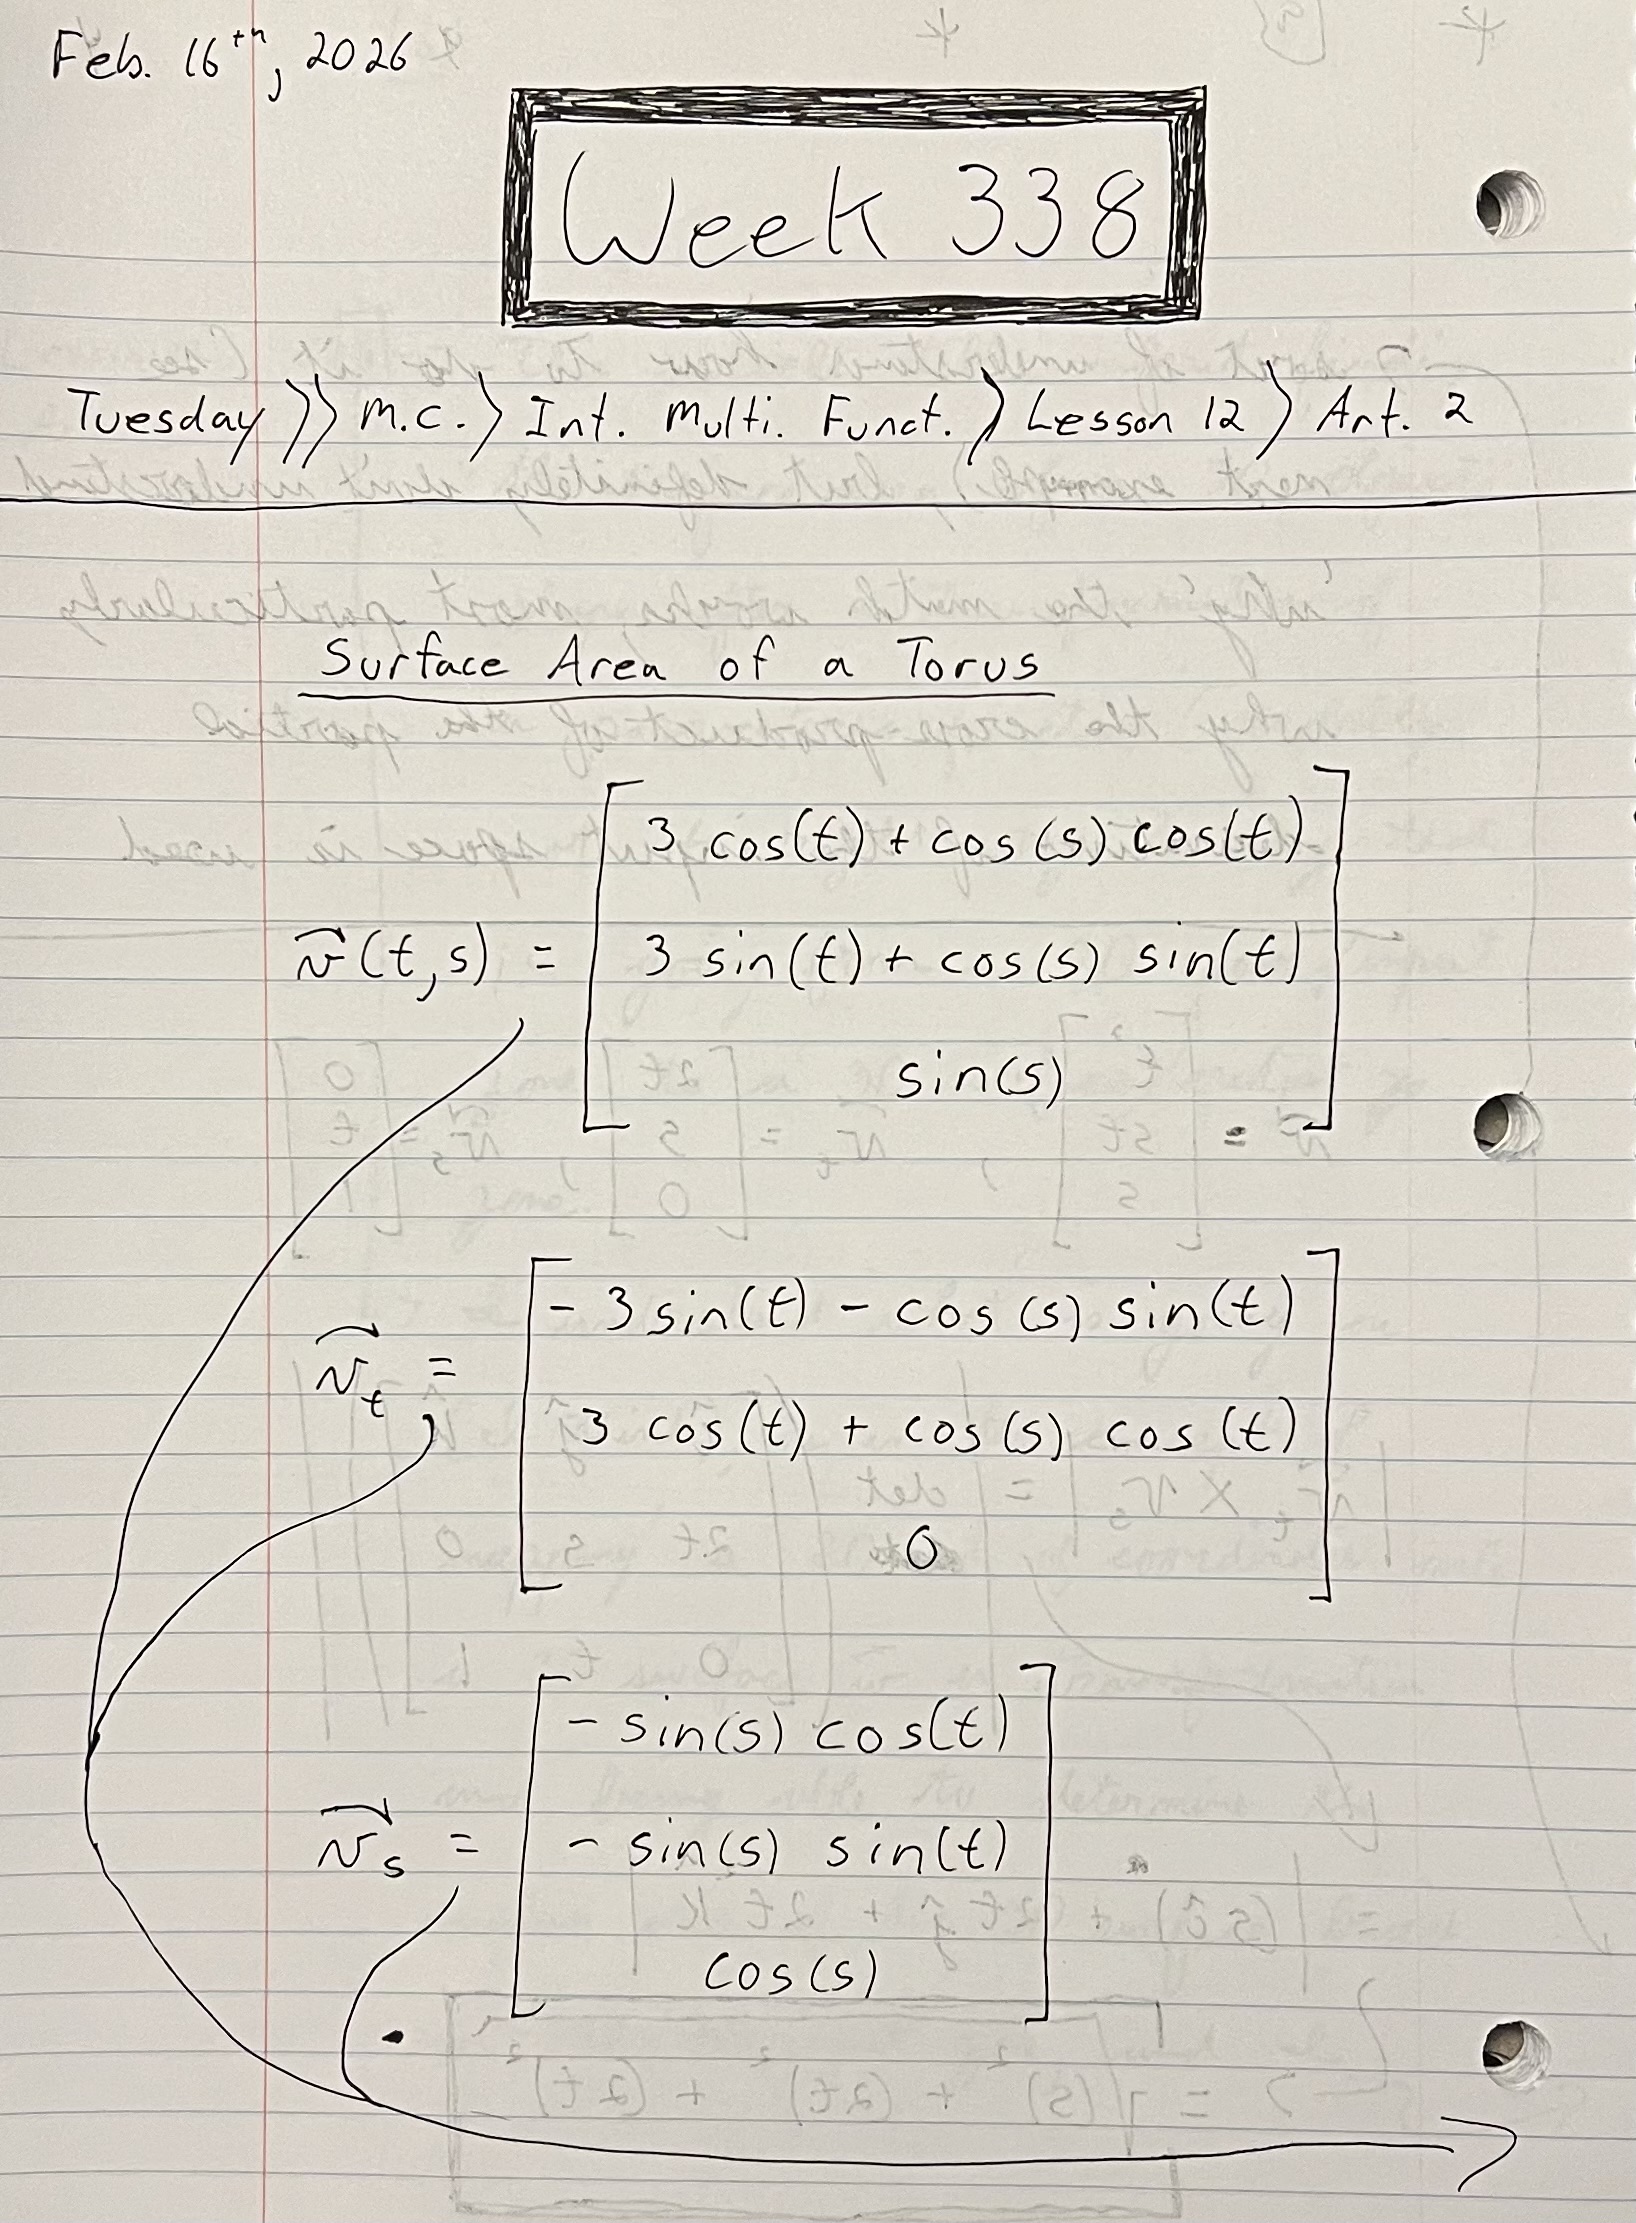 Feb. 16th, 2026
Week 338
Tuesday >> M.C. > Int. Multi. Funct. > Lesson 12 > Art. 2
Surface Area of a Torus
3 cos(t) + cos(s) cos(t)
v⃗(t,s) = 3 sin(t) + cos(s) sin(t)
sin(s)
- 3 sin(t) - cos(s) sin(t)
v⃗_t =
3 cos(t) + cos(s) cos(t)
0
- sin(s) cos(t)
v⃗_s = - sin(s) sin(t)
cos(s)